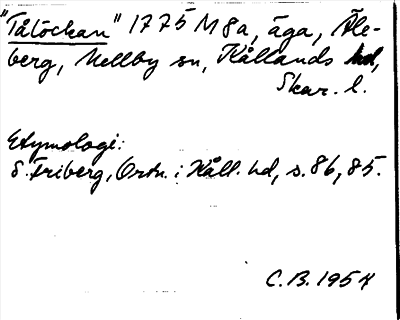 "Tåtöckan" 1775 M8a, äga, Åle-
berg, Mellby sn, Kållands hd,
Skar. l.
Etymologi:
S. Friberg, Ortn. i Kåll. hd, s. 86, 85.
C.B. 1954